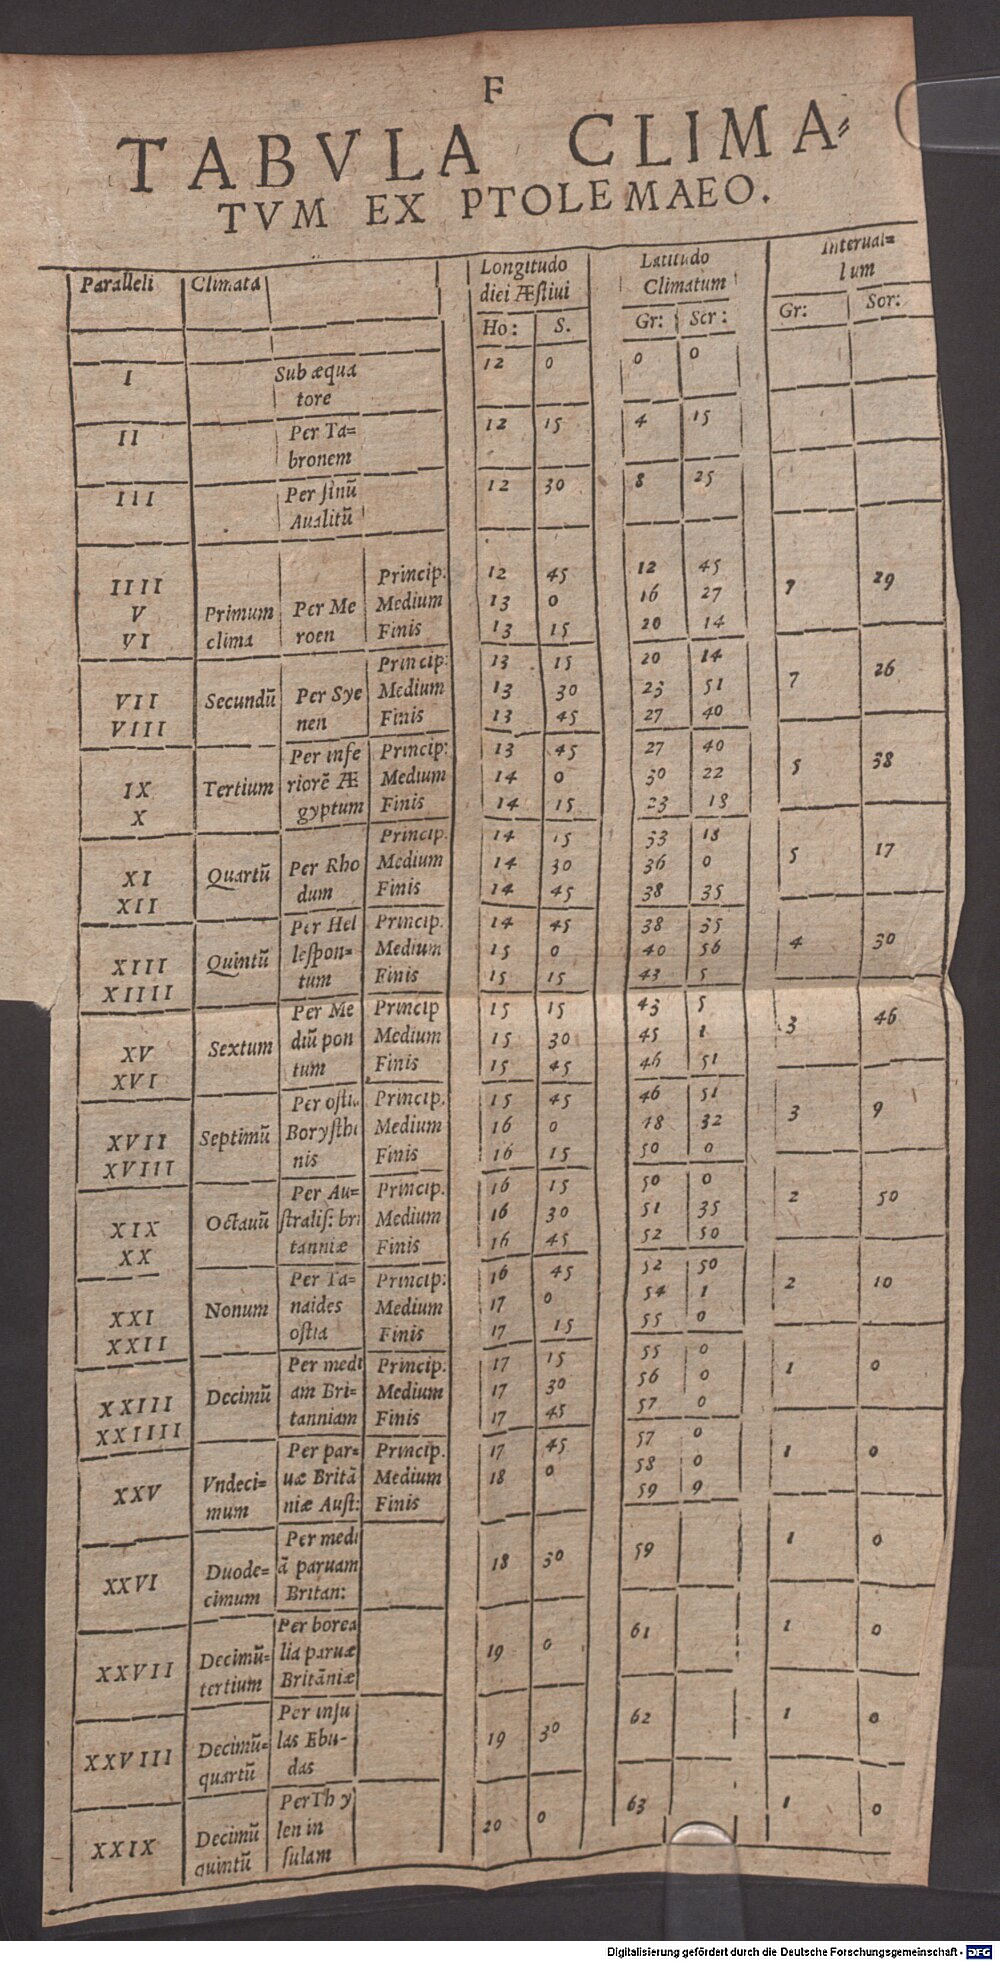 F
TABVLA CLIMA⸗
TVM EX PTOLEMAEO.
Paralleli Climata Longitudo diei Æſtiui Latitudo Climatum Interual⸗lum
Ho: S. Gr: Scr: Gr: Scr:
I Sub æqua 12 0 0 0
tore
II Per Ta⸗ 12 15 4 15
bronem
III Per ſinũ 12 30 8 25
Aualitũ
Princip. 12 45 12 45
IIII Medium 13 0 16 27 7 29
V Primum Per Me
VI clima roen Finis 13 15 20 14
Princip: 13 15 20 14
VII Secundũ Per Sye Medium 13 30 23 51 7 26
VIII nen Finis 13 45 27 40
Per infe Princip: 13 45 27 40
IX Tertium riorẽ Æ Medium 14 0 30 22 5 38
X gyptum Finis 14 15 23 18
Princip. 14 15 33 18
XI Quartũ Per Rho Medium 14 30 36 0 5 17
XII dum Finis 14 45 38 35
Per Hel Princip. 14 45 38 35
XIII Quintũ leſpon⸗ Medium 15 0 40 56 4 30
XIIII tum Finis 15 15 43 5
Per Me Princip 15 15 43 5
XV Sextum diũ pon Medium 15 30 45 1 3 46
XVI tum Finis 15 45 46 51
Per oſtia Princip. 15 45 46 51
XVII Septimũ Boryſthe Medium 16 0 48 32 3 9
XVIII nis Finis 16 15 50 0
Per Au⸗ Princip. 16 15 50 0
XIX Octauũ ſtraliſ: bri Medium 16 30 51 35 2 50
XX tanniæ Finis 16 45 52 50
Per Ta⸗ Princip: 16 45 52 50
XXI Nonum naides Medium 17 0 54 1 2 10
XXII oſtia Finis 17 15 55 0
Per medi Princip. 17 15 55 0
XXIII Decimũ am Bri⸗ Medium 17 30 56 0 1 0
XXIIII tanniam Finis 17 45 57 0
Per par⸗ Princip. 17 45 57 0
XXV Vndeci⸗ uæ Britã Medium 18 0 58 0 1 0
mum niæ Auſt: Finis 59 9
Per medi
XXVI Duode⸗ ã paruam 18 30 59 1 0
cimum Britan:
Per borea
XXVII Decimũ⸗ lia paruæ 19 0 61 1 0
tertium Britãniæ
Per inſu
XXVIII Decimũ⸗ las Ebu- 19 30 62 1 0
quartũ das
Per Thy
XXIX Decimũ len in 20 0 63 1 0
quintũ ſulam
Digitalisierung gefördert durch die Deutsche Forschungsgemeinschaft - DFG